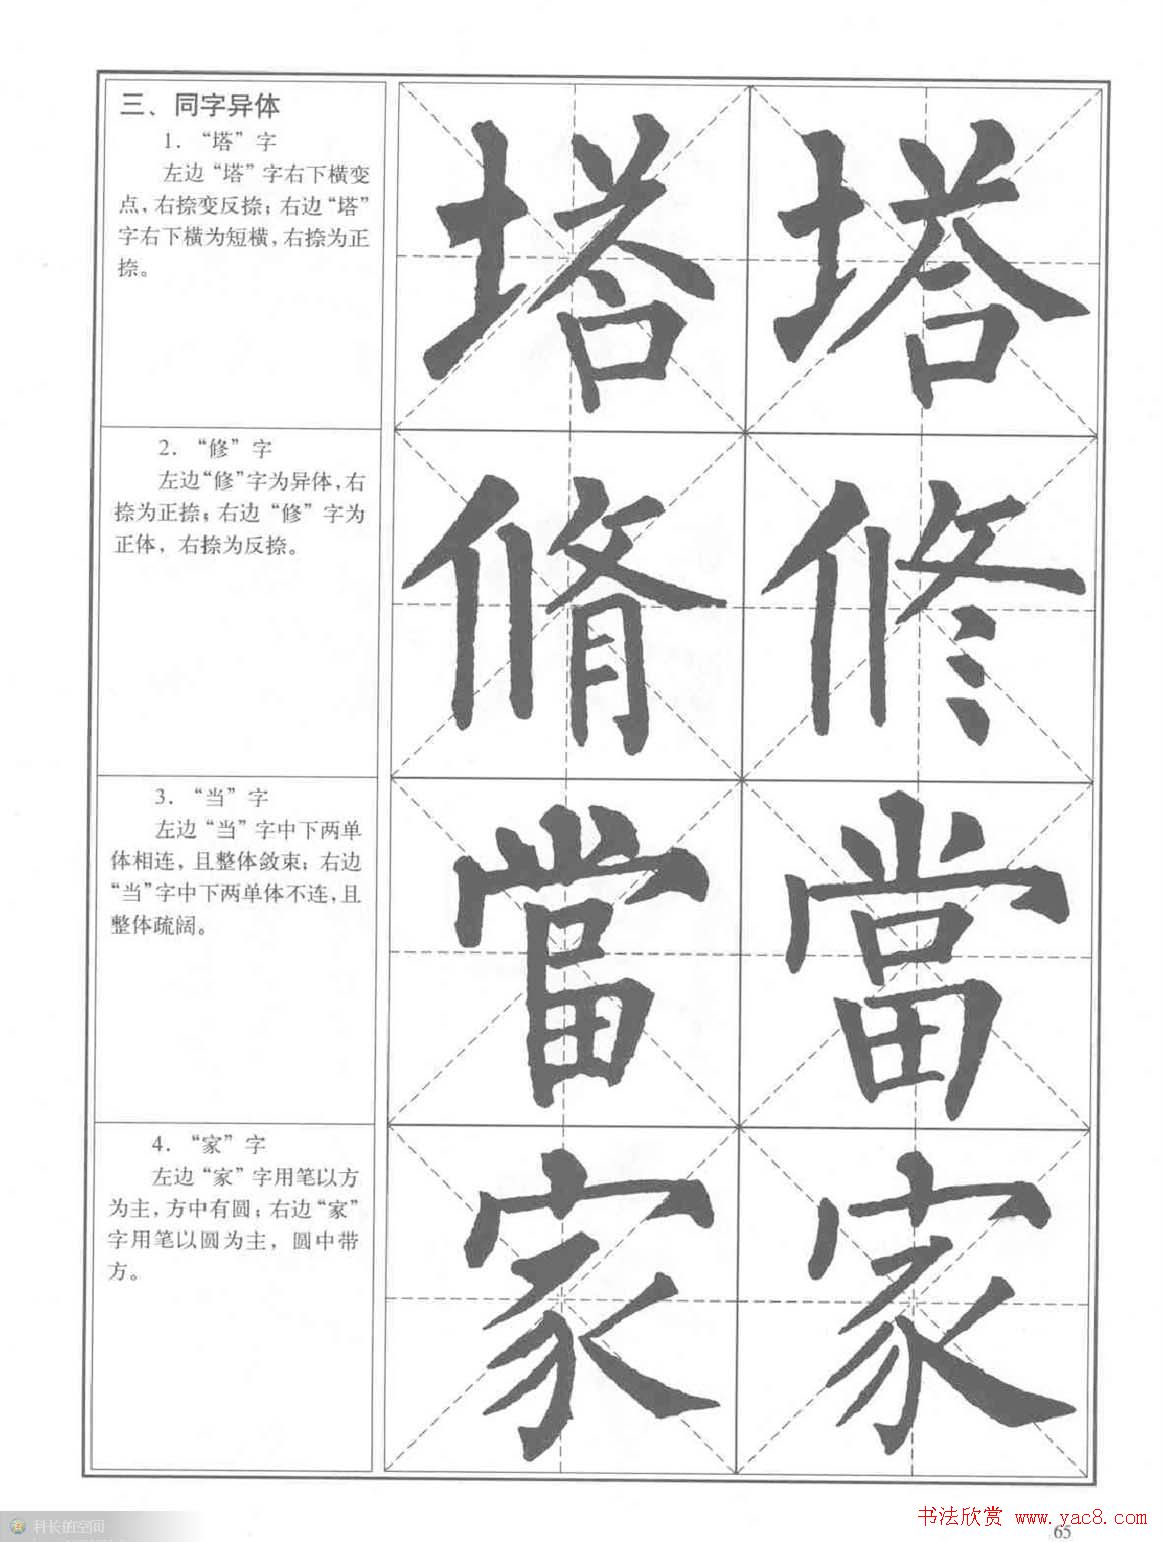 三、同字异体
1．“塔”字
左边“塔”字右下横变
点，右捺变反捺；右边“塔”
字右下横为短横，右捺为正
捺。
塔 塔
2．“修”字
左边“修”字为异体，右
捺为正捺；右边“修”字为
正体，右捺为反捺。
脩 修
3．“当”字
左边“当”字中下两单
体相连，且整体敛束；右边
“当”字中下两单体不连，且
整体疏阔。
當 當
4．“家”字
左边“家”字用笔以方
为主，方中有圆；右边“家”
字用笔以圆为主，圆中带
方。
家 家
科长的空间
书法欣赏 www.yac8.com
65